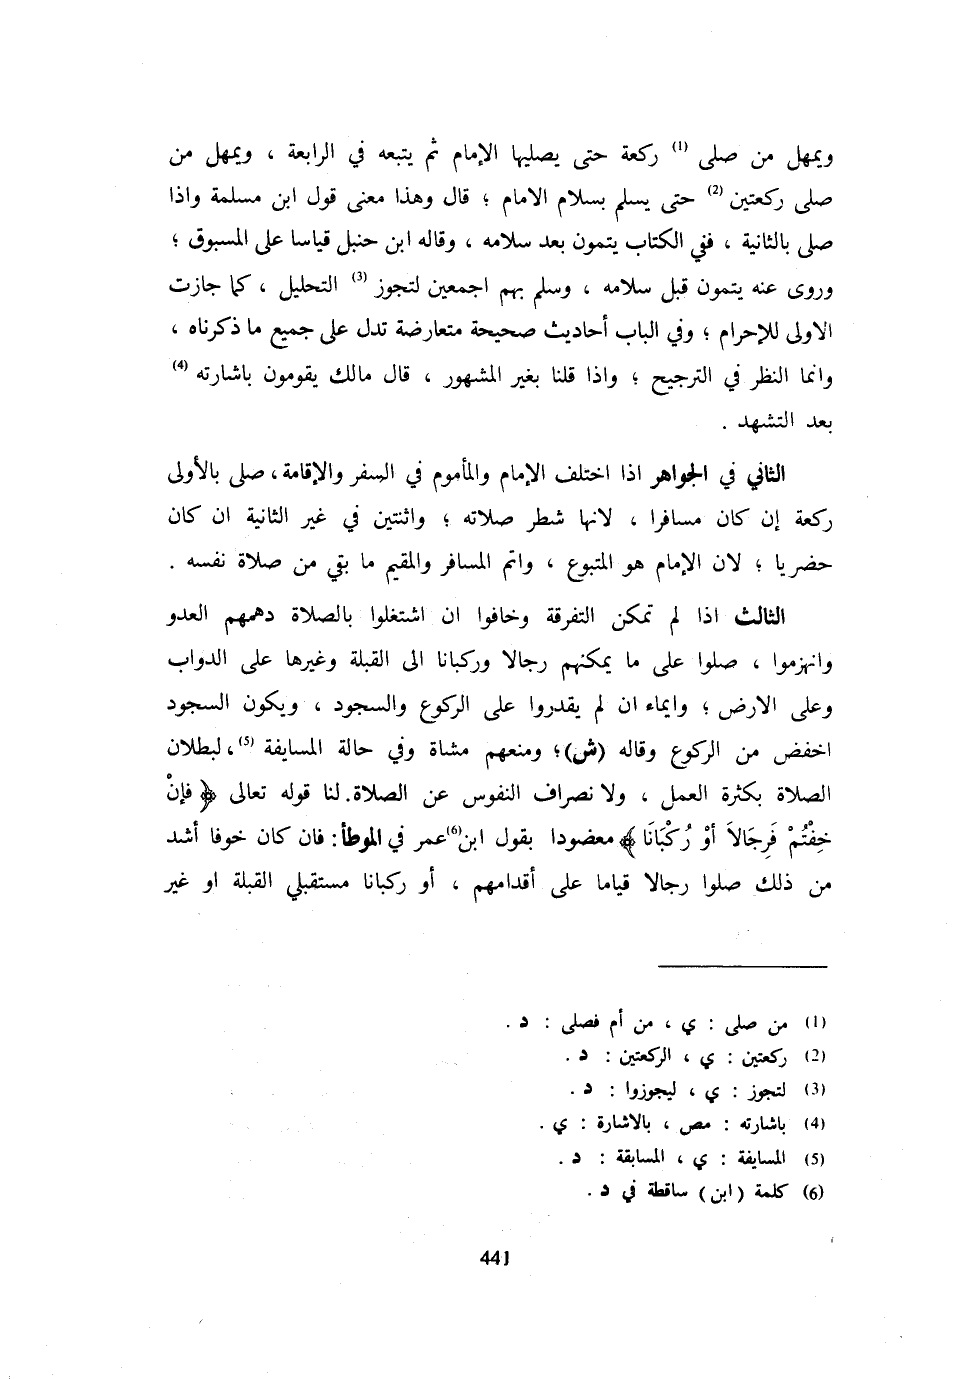 ويمهل من صلى (1) ركعة حتى يصليها الإمام ثم يتبعه في الرابعة ، ويمهل من
صلى ركعتين (2) حتى يسلم بسلام الامام ؛ قال وهذا معنى قول ابن مسلمة واذا
صلى بالثانية ، ففي الكتاب يتمون بعد سلامه ، وقاله ابن حنبل قياسا على المسبوق ؛
وروى عنه يتمون قبل سلامه ، وسلم بهم اجمعين لتجوز (3) التحليل ، كما جازت
الاولى للإحرام ؛ وفي الباب أحاديث صحيحة متعارضة تدل على جميع ما ذكرناه ،
وانما النظر في الترجيح ؛ واذا قلنا بغير المشهور ، قال مالك يقومون باشارته (4)
بعد التشهد .
الثاني في الجواهر اذا اختلف الإمام والمأموم في السفر والإقامة، صلى بالأولى
ركعة إن كان مسافرا ، لانها شطر صلاته ؛ واثنتين في غير الثانية ان كان
حضريا ؛ لان الإمام هو المتبوع ، واتم المسافر والمقيم ما بقي من صلاة نفسه .
الثالث اذا لم تمكن التفرقة وخافوا ان اشتغلوا بالصلاة دهمهم العدو
وانهزموا ، صلوا على ما يمكنهم رجالا وركبانا الى القبلة وغيرها على الدواب
وعلى الارض ؛ وايماء ان لم يقدروا على الركوع والسجود ، ويكون السجود
اخفض من الركوع وقاله (ش)؛ ومنعهم مشاة وفي حالة المسايفة (5)، لبطلان
الصلاة بكثرة العمل ، ولا نصراف النفوس عن الصلاة. لنا قوله تعالى ﴿ فإنْ
خِفْتُمْ فَرِجَالاً أوْ رُكْبَانَا ﴾ معضودا بقول ابن(6)عمر في الموطأ: فان كان خوفا أشد
من ذلك صلوا رجالا قياما على أقدامهم ، أو ركبانا مستقبلي القبلة او غير
(1) من صلى : ي ، من أم فصلى : د .
(2) ركعتين : ي ، الركعتين : د .
(3) لتجوز : ي ، ليجوزوا : د .
(4) باشارته : مص ، بالاشارة : ي .
(5) المسايفة : ي ، المسابقة : د .
(6) كلمة (ابن) ساقطة في د .
441